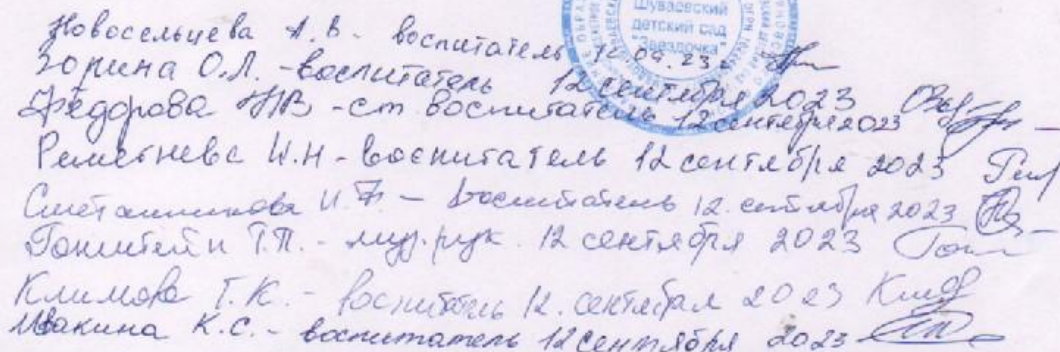 Шуваевский
детский сад
"Звездочка"
Новосельцева А.В. - воспитатель 12.09.23г.
Зорина О.Л. - воспитатель 12 сентября 2023
Федорова Н.В. - ст. воспитатель 12 сентября 2023
И.Н - воспитатель 12 сентября 2023
Сметанникова И. - воспитатель 12. сентября 2023
Т.П. - муз. рук. 12 сентября 2023
Климова Т.К. - воспитатель 12. сентября 2023
Ивакина К.С. - воспитатель 12 сентября 2023